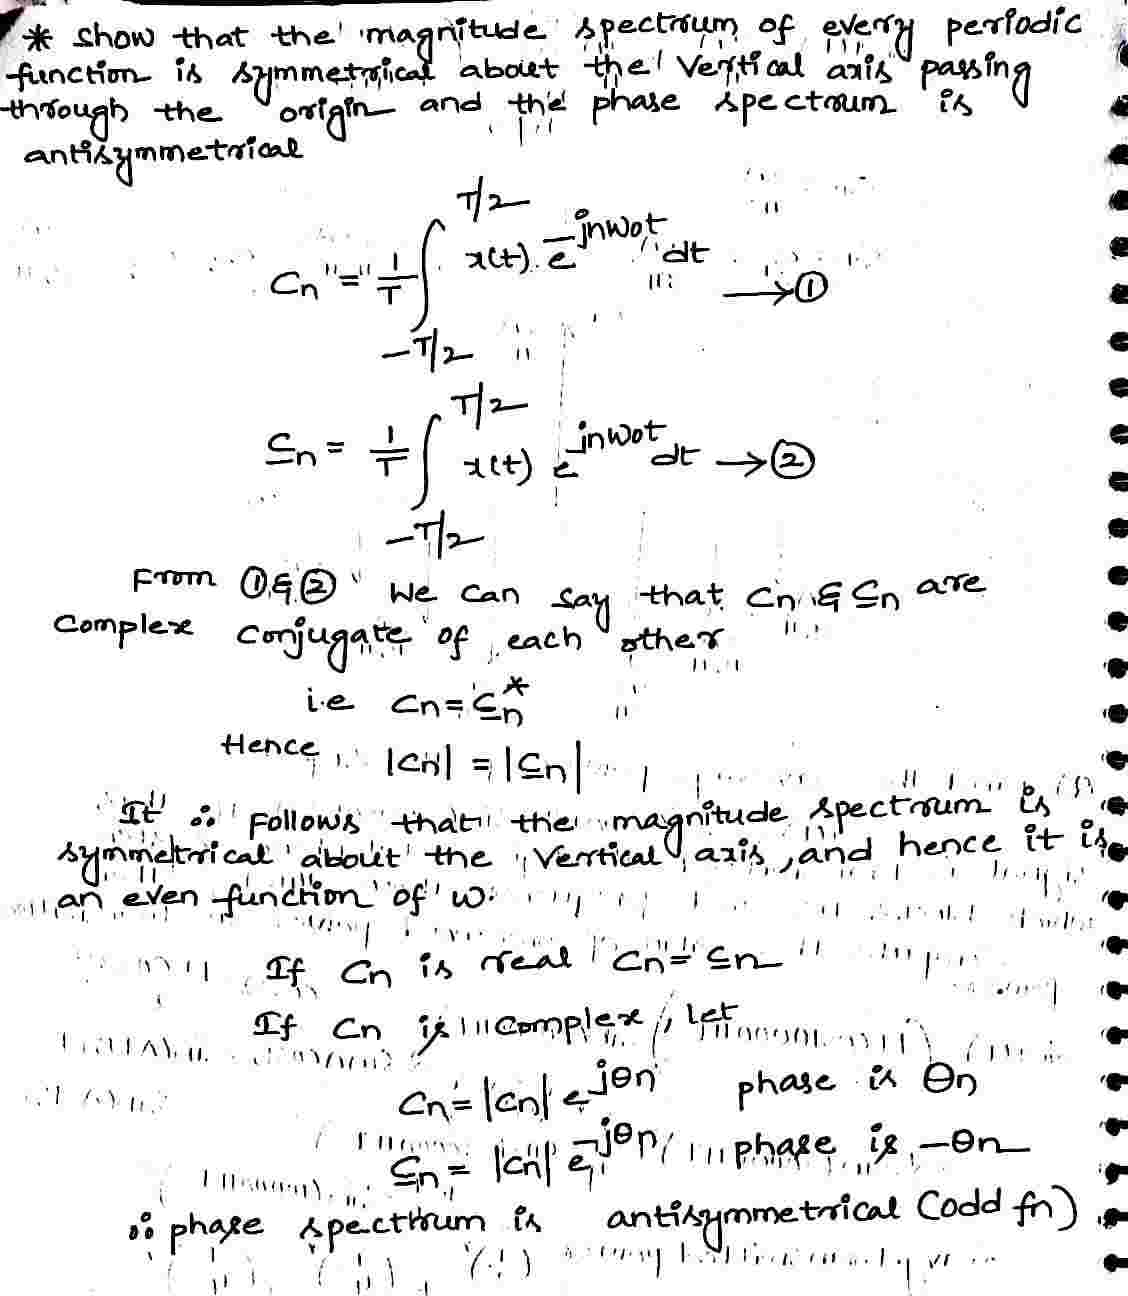 * Show that the magnitude spectrum of every periodic
function is symmetrical about the vertical axis passing
through the origin and the phase spectrum is
antisymmetrical
Cn = 1/T ∫_{-T/2}^{T/2} x(t). e^{-jnω0t} dt → ①
C̲n = 1/T ∫_{-T/2}^{T/2} x(t) e^{jnω0t} dt → ②
From ① & ② We can say that Cn & C̲n are
Complex conjugate of each other
i.e Cn = C̲n*
Hence |Cn| = |C̲n|
It ∴ Follows that the magnitude spectrum is
symmetrical about the Vertical axis, and hence it is
an even function of ω.
If Cn is real Cn = C̲n
If Cn is complex, let
Cn = |Cn| e^{jθn} phase is θn
C̲n = |Cn| e^{-jθn} phase is -θn
∴ phase spectrum is antisymmetrical (odd fn)